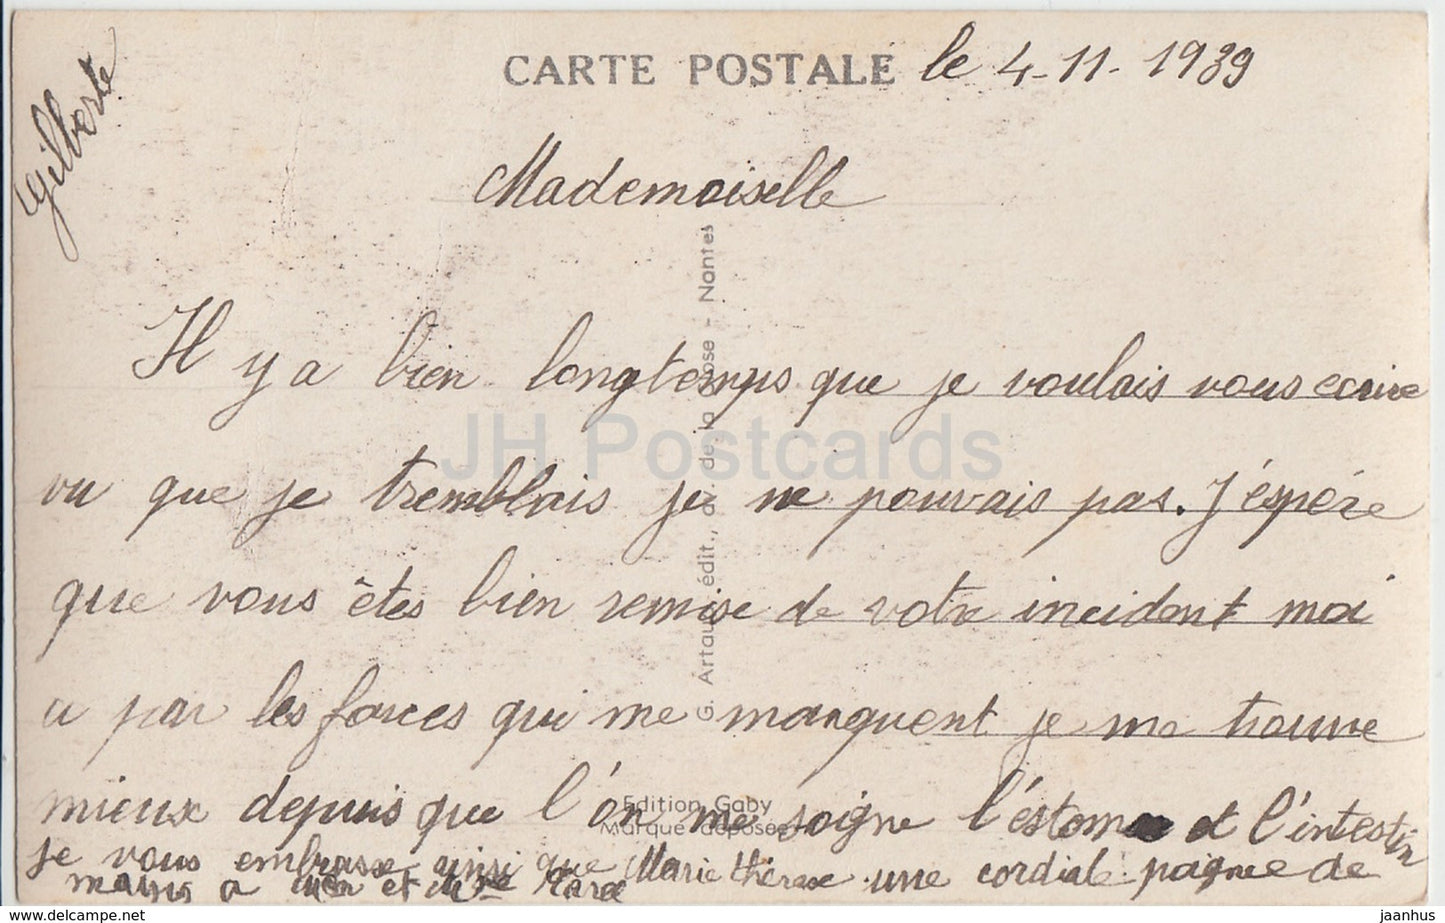 CARTE POSTALE le 4-11-1939
Gilberte
Mademoiselle
Il y a bien longtemps que je voulais vous ecrire
vu que je tremblais je ne pouvais pas. J'éspére
que vous êtes bien remise de votre incident moi
a par les forces qui me manquent je me trouve
mieux depuis que l'on me soigne l'estomac et l'intestin
je vous embrasse ainsi que Marie thérese une cordiale poignee de
mains a et
G. Artaud, édit., av. de la Close - Nantes
Edition Gaby
Marque déposée
JH Postcards
delcampe.net
jaanhus